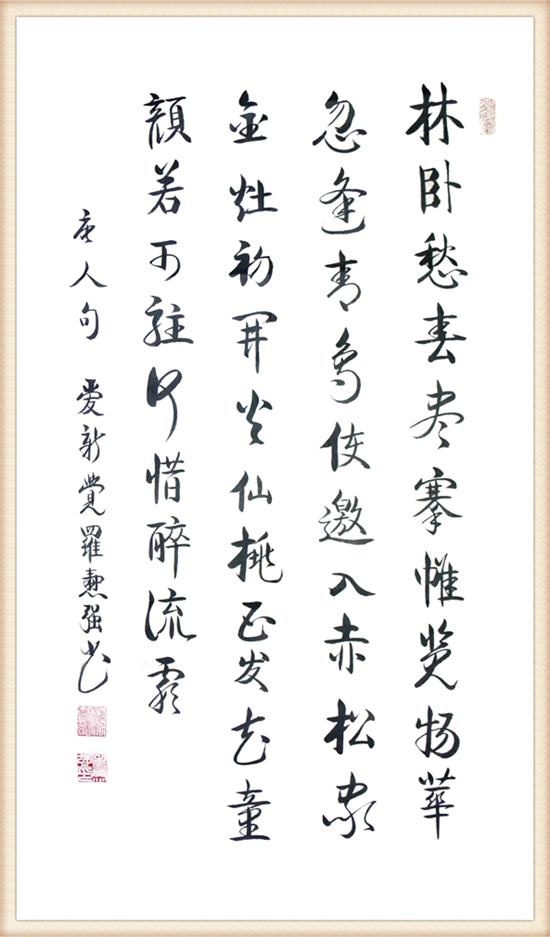 林卧愁春尽搴帷览物華
忽逢青鸟使邀入赤松家
金灶初開火仙桃正发花童
顔若可駐何惜醉流霞
唐人句 愛新覺羅 强书